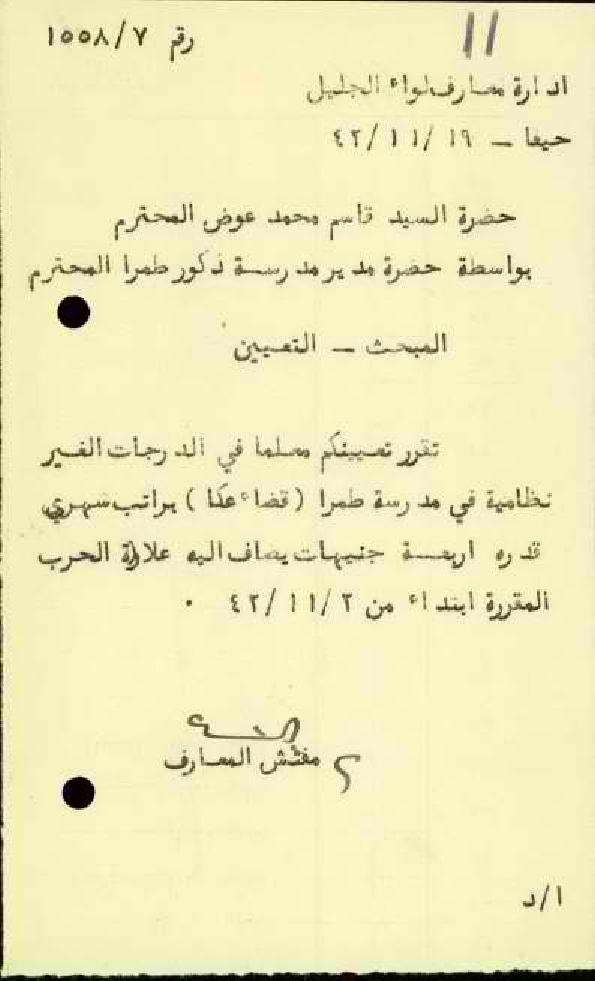 رقم ١٥٥٨/٧
11
ادارة معارف لواء الجليل
حيفا — ١٩/١١/٤٢
حضرة السيد قاسم محمد عوض المحترم
بواسطة حضرة مدير مدرسة ذكور طمرا المحترم
المبحث — التعيين
تقرر تعيينكم معلما في الدرجات الغير
نظامية في مدرسة طمرا (قضاء عكا) براتب شهري
قدره اربعة جنيهات يضاف اليه علاوة الحرب
المقررة ابتداء من ٤٢/١١/٢ ٠
مفتش المعارف
ا/د